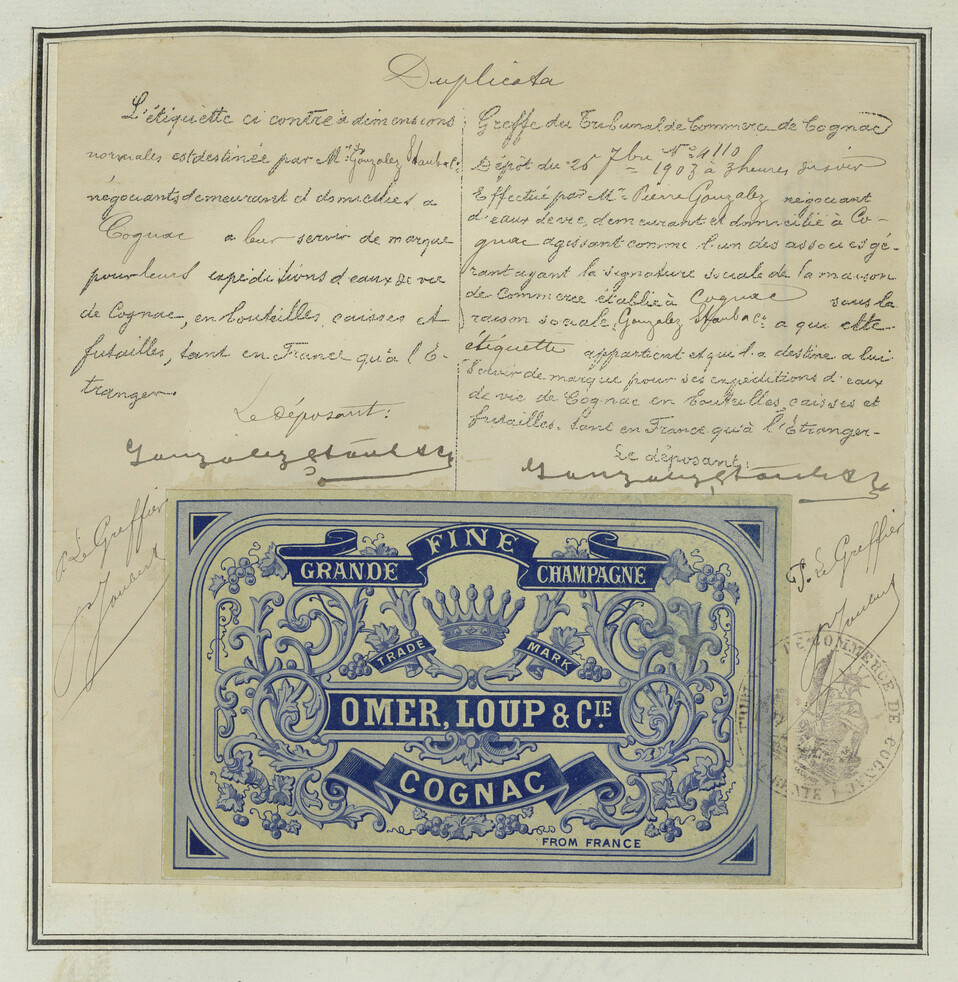 Duplicata
L'étiquette ci contre à dimensions
normales est destinée par M.rs Gonzalez Staub & Cie
négociants demeurant et domiciliés à
Cognac à leur servir de marque
pour leurs expéditions d'eaux de vie
de Cognac, en bouteilles, caisses et
futailles, tant en France qu'à l'É-
tranger.
Le Déposant:
Gonzalez Staub & Cie
P. Le Greffier
Greffe du Tribunal de Commerce de Cognac
Dépôt du 26 7bre No 4110
1903 à 3 heures du soir
Effectué par M.r Pierre Gonzalez négociant
d'eaux de vie, demeurant et domicilié à Co-
gnac agissant comme l'un des associés gé-
rant ayant la signature sociale de la maison
de Commerce établie à Cognac sous la
raison sociale, Gonzalez Staub & Cie à qui cette
étiquette appartient et qui l'a destiné à lui
servir de marque pour ses expéditions d'eaux
de vie de Cognac en bouteilles, caisses et
futailles, tant en France qu'à l'Étranger-
Le déposant:
Gonzalez Staub & Cie
P. Le Greffier
FINE
GRANDE CHAMPAGNE
TRADE MARK
OMER, LOUP & CIE
COGNAC
FROM FRANCE
DE COMMERCE DE COGNAC